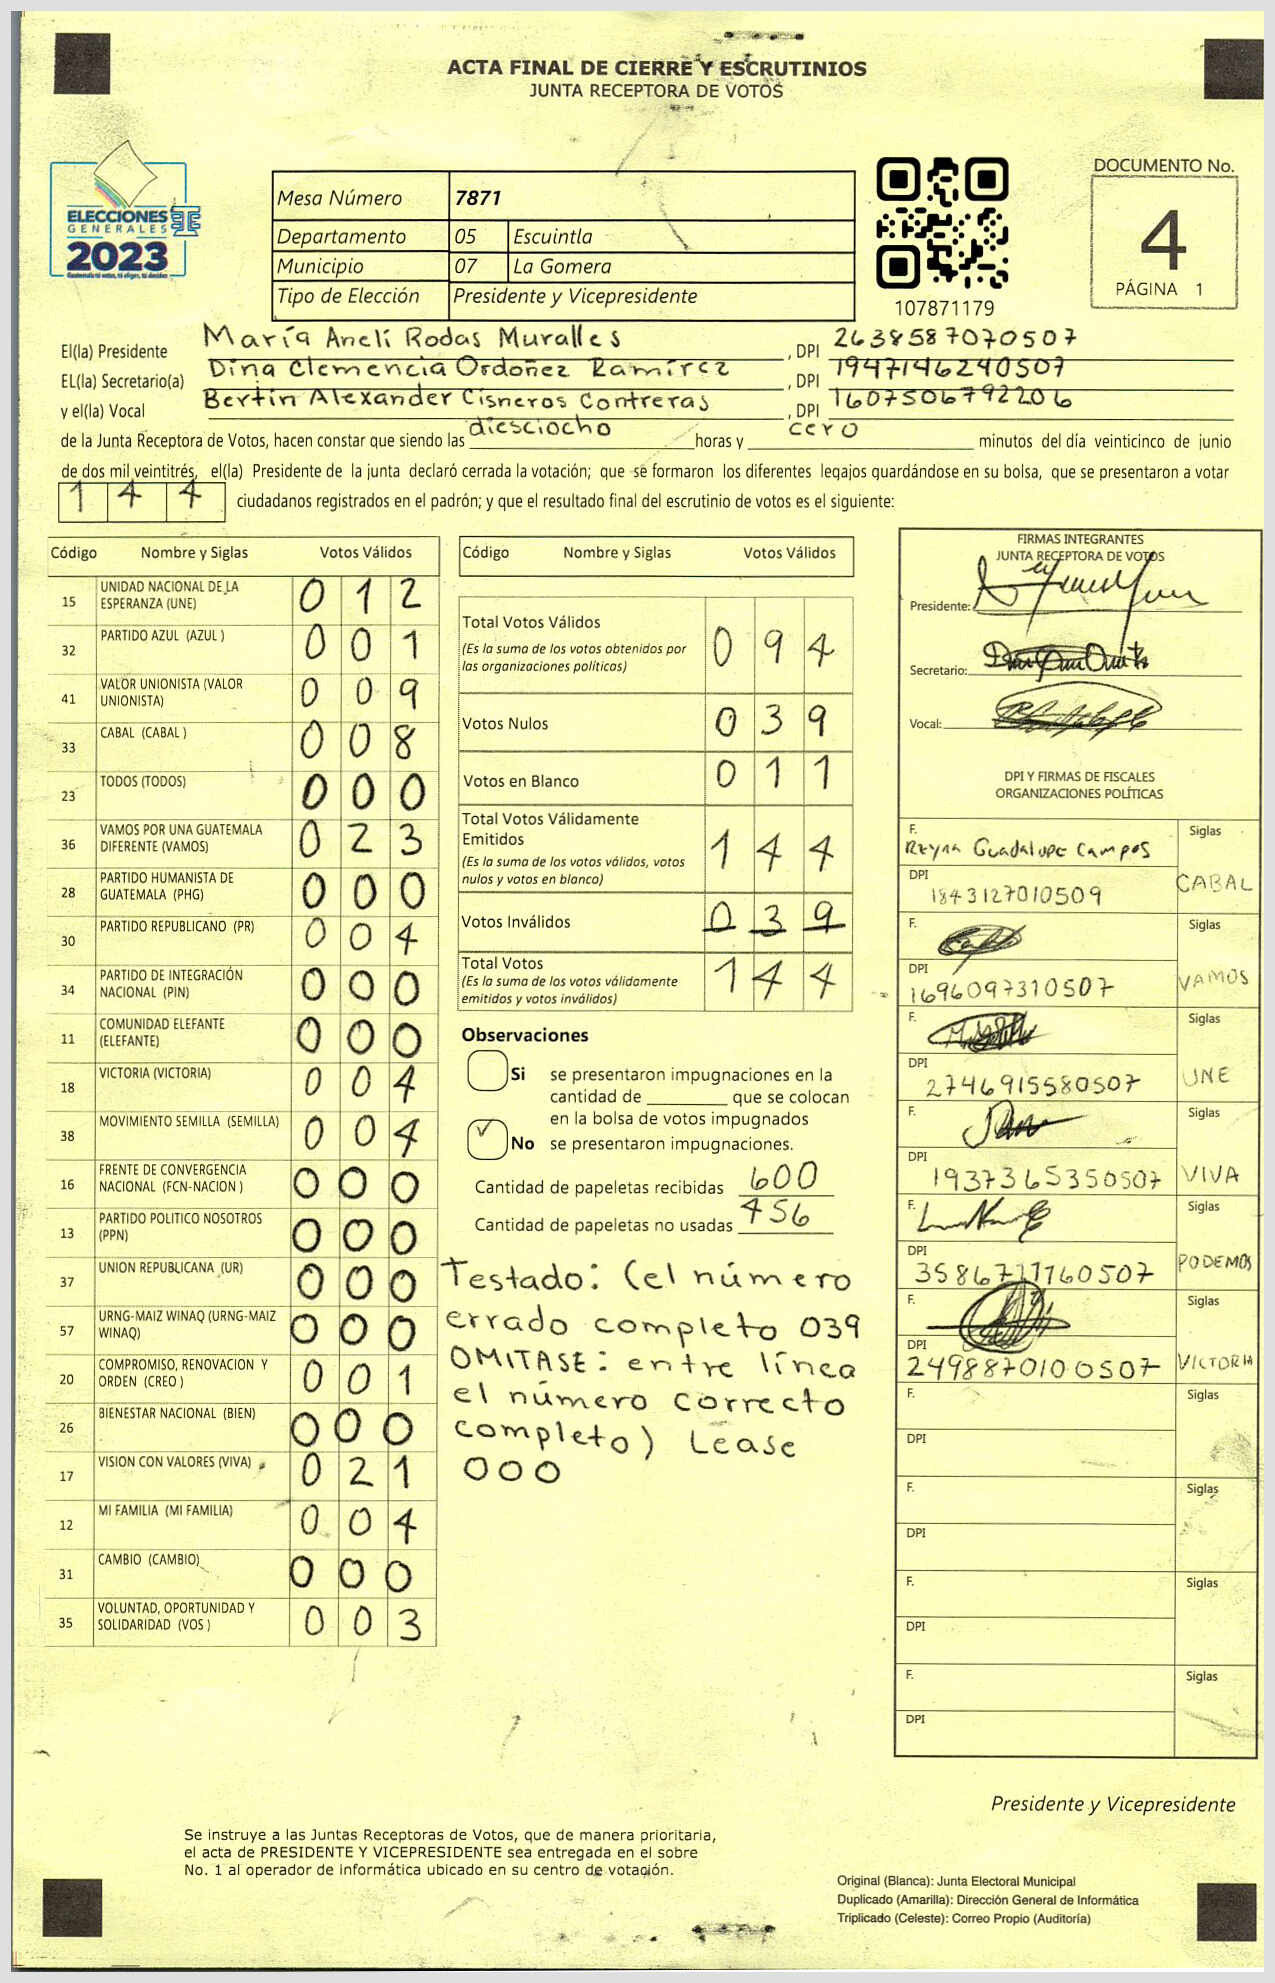 ACTA FINAL DE CIERRE Y ESCRUTINIOS
JUNTA RECEPTORA DE VOTOS
ELECCIONES
GENERALES
2023
Guatemala tú votas, tú eliges, tú decides
Mesa Número 7871
Departamento 05 Escuintla
Municipio 07 La Gomera
Tipo de Elección Presidente y Vicepresidente
107871179
DOCUMENTO No.
4
PÁGINA 1
El(la) Presidente María Anelí Rodas Muralles , DPI 2638587070507
EL(la) Secretario(a) Dina Clemencia Ordoñez Ramírez , DPI 1947146240507
y el(la) Vocal Bertin Alexander Cisneros Contreras , DPI 1607506792206
de la Junta Receptora de Votos, hacen constar que siendo las diesciocho horas y cero minutos del día veinticinco de junio
de dos mil veintitrés, el(la) Presidente de la junta declaró cerrada la votación; que se formaron los diferentes legajos guardándose en su bolsa, que se presentaron a votar
144 ciudadanos registrados en el padrón; y que el resultado final del escrutinio de votos es el siguiente:
Código Nombre y Siglas Votos Válidos
15 UNIDAD NACIONAL DE LA ESPERANZA (UNE) 012
32 PARTIDO AZUL (AZUL ) 001
41 VALOR UNIONISTA (VALOR UNIONISTA) 009
33 CABAL (CABAL ) 008
23 TODOS (TODOS) 000
36 VAMOS POR UNA GUATEMALA DIFERENTE (VAMOS) 023
28 PARTIDO HUMANISTA DE GUATEMALA (PHG) 000
30 PARTIDO REPUBLICANO (PR) 004
34 PARTIDO DE INTEGRACIÓN NACIONAL (PIN) 000
11 COMUNIDAD ELEFANTE (ELEFANTE) 000
18 VICTORIA (VICTORIA) 004
38 MOVIMIENTO SEMILLA (SEMILLA) 004
16 FRENTE DE CONVERGENCIA NACIONAL (FCN-NACION ) 000
13 PARTIDO POLITICO NOSOTROS (PPN) 000
37 UNION REPUBLICANA (UR) 000
57 URNG-MAIZ WINAQ (URNG-MAIZ WINAQ) 000
20 COMPROMISO, RENOVACION Y ORDEN (CREO ) 001
26 BIENESTAR NACIONAL (BIEN) 000
17 VISION CON VALORES (VIVA) 021
12 MI FAMILIA (MI FAMILIA) 004
31 CAMBIO (CAMBIO) 000
35 VOLUNTAD, OPORTUNIDAD Y SOLIDARIDAD (VOS ) 003
Código Nombre y Siglas Votos Válidos
Total Votos Válidos 094
(Es la suma de los votos obtenidos por
las organizaciones políticas)
Votos Nulos 039
Votos en Blanco 011
Total Votos Válidamente
Emitidos 144
(Es la suma de los votos válidos, votos
nulos y votos en blanco)
Votos Inválidos 039
Total Votos 144
(Es la suma de los votos válidamente
emitidos y votos inválidos)
Observaciones
Si se presentaron impugnaciones en la
cantidad de ________ que se colocan
en la bolsa de votos impugnados
No se presentaron impugnaciones.
Cantidad de papeletas recibidas 600
Cantidad de papeletas no usadas 456
Testado: (el número
errado completo 039
OMITASE: entre línea
el número correcto
completo) Lease
000
FIRMAS INTEGRANTES
JUNTA RECEPTORA DE VOTOS
Presidente:
Secretario:
Vocal:
DPI Y FIRMAS DE FISCALES
ORGANIZACIONES POLÍTICAS
F. Reyna Guadalupe Campos Siglas
DPI 1843127010509 CABAL
F. Siglas
DPI 1696097310507 VAMOS
F. Siglas
DPI 2746915580507 UNE
F. Siglas
DPI 1937365350507 VIVA
F. Siglas
DPI 3586711760507 PODEMOS
F. Siglas
DPI 2498870100507 VICTORIA
F. Siglas
DPI
F. Siglas
DPI
F. Siglas
DPI
F. Siglas
DPI
Presidente y Vicepresidente
Se instruye a las Juntas Receptoras de Votos, que de manera prioritaria,
el acta de PRESIDENTE Y VICEPRESIDENTE sea entregada en el sobre
No. 1 al operador de informática ubicado en su centro de votación.
Original (Blanca): Junta Electoral Municipal
Duplicado (Amarilla): Dirección General de Informática
Triplicado (Celeste): Correo Propio (Auditoría)